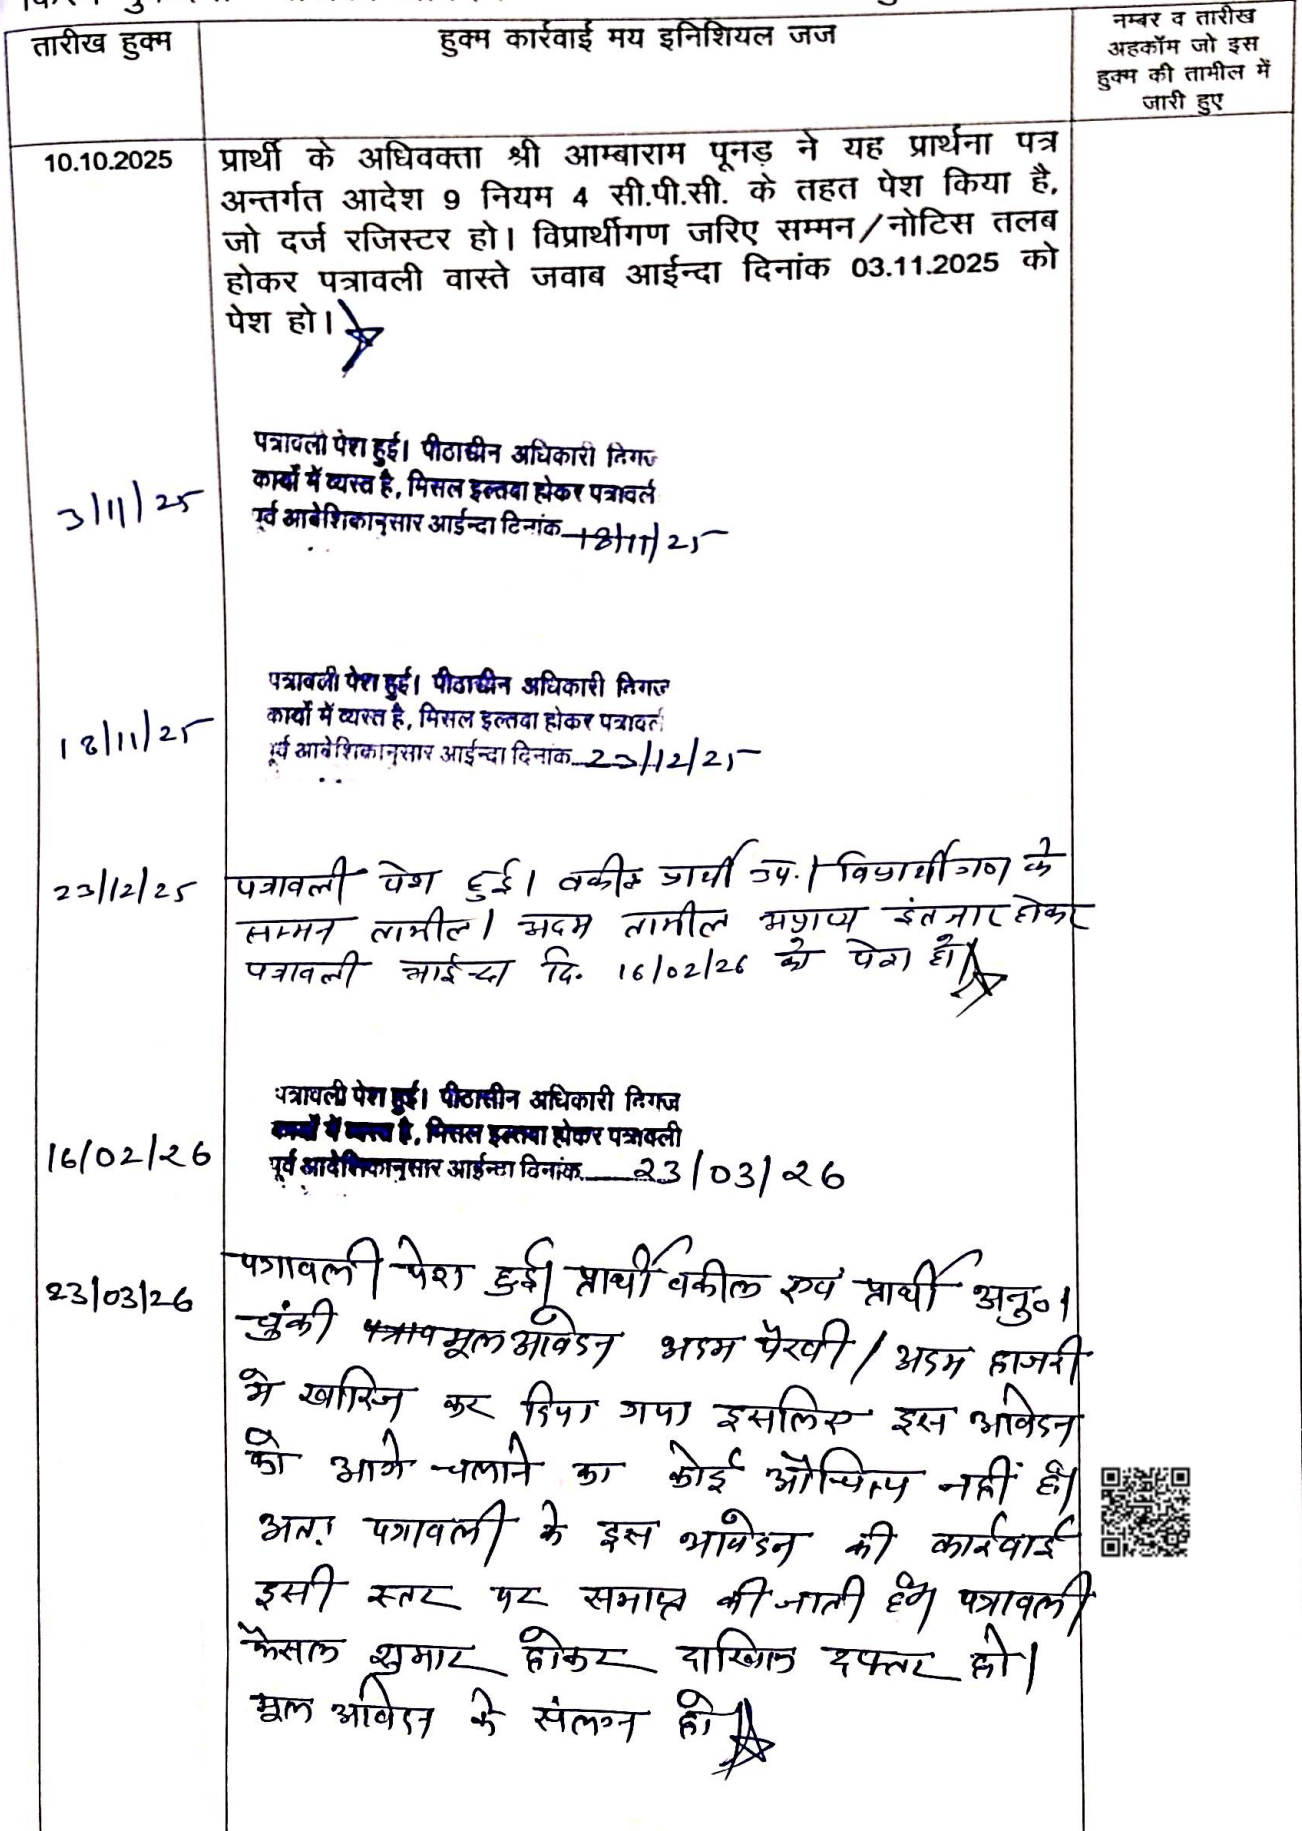 तारीख हुक्म
हुक्म कार्रवाई मय इनिशियल जज
नम्बर व तारीख
अहकॉम जो इस
हुक्म की तामील में
जारी हुए
10.10.2025
प्रार्थी के अधिवक्ता श्री आम्बाराम पूनड़ ने यह प्रार्थना पत्र
अन्तर्गत आदेश 9 नियम 4 सी.पी.सी. के तहत पेश किया है,
जो दर्ज रजिस्टर हो। विप्रार्थीगण जरिए सम्मन/नोटिस तलब
होकर पत्रावली वास्ते जवाब आईन्दा दिनांक 03.11.2025 को
पेश हो।
3/11/25
पत्रावली पेश हुई। पीठासीन अधिकारी निगज
कार्यो में व्यस्त है, मिसल इल्तवा होकर पत्रावर्ल
पूर्व आवेशिकानुसार आईन्दा दिनांक 18/11/25
18/11/25
पत्रावली पेश हुई। पीठासीन अधिकारी निगज
कार्यो में व्यस्त है, मिसल इल्तवा होकर पत्रावर्ल
पूर्व आवेशिकानुसार आईन्दा दिनांक 23/12/25
23/12/25
पत्रावली पेश हुई। वकील प्रार्थी उप.। विप्रार्थीगण के
सम्मन तामील। अदम तामील अप्राप्य इंतजार होकर
पत्रावली आईन्दा दि. 16/02/26 को पेश हो।
16/02/26
पत्रावली पेश हुई। पीठासीन अधिकारी निगज
कार्यो में व्यस्त है, मिसल इल्तवा होकर पत्रावली
पूर्व आवेशिकानुसार आईन्दा दिनांक 23/03/26
23/03/26
पत्रावली पेश हुई। प्रार्थी वकील एवं प्रार्थी अनु०।
चुंकी पत्राव मूल आवेदन अदम पैरवी / अदम हाजरी
मे खारिज कर दिया गया इसलिए इस आवेदन
को आगे चलाने का कोई औचित्य नहीं है।
अतः पत्रावली के इस आवेदन की कार्रवाई
इसी स्तर पर समाप्त की जाती है। पत्रावली
फैसल शुमार होकर दाखिल दफ्तर हो।
मूल आवेदन के संलग्न हो।